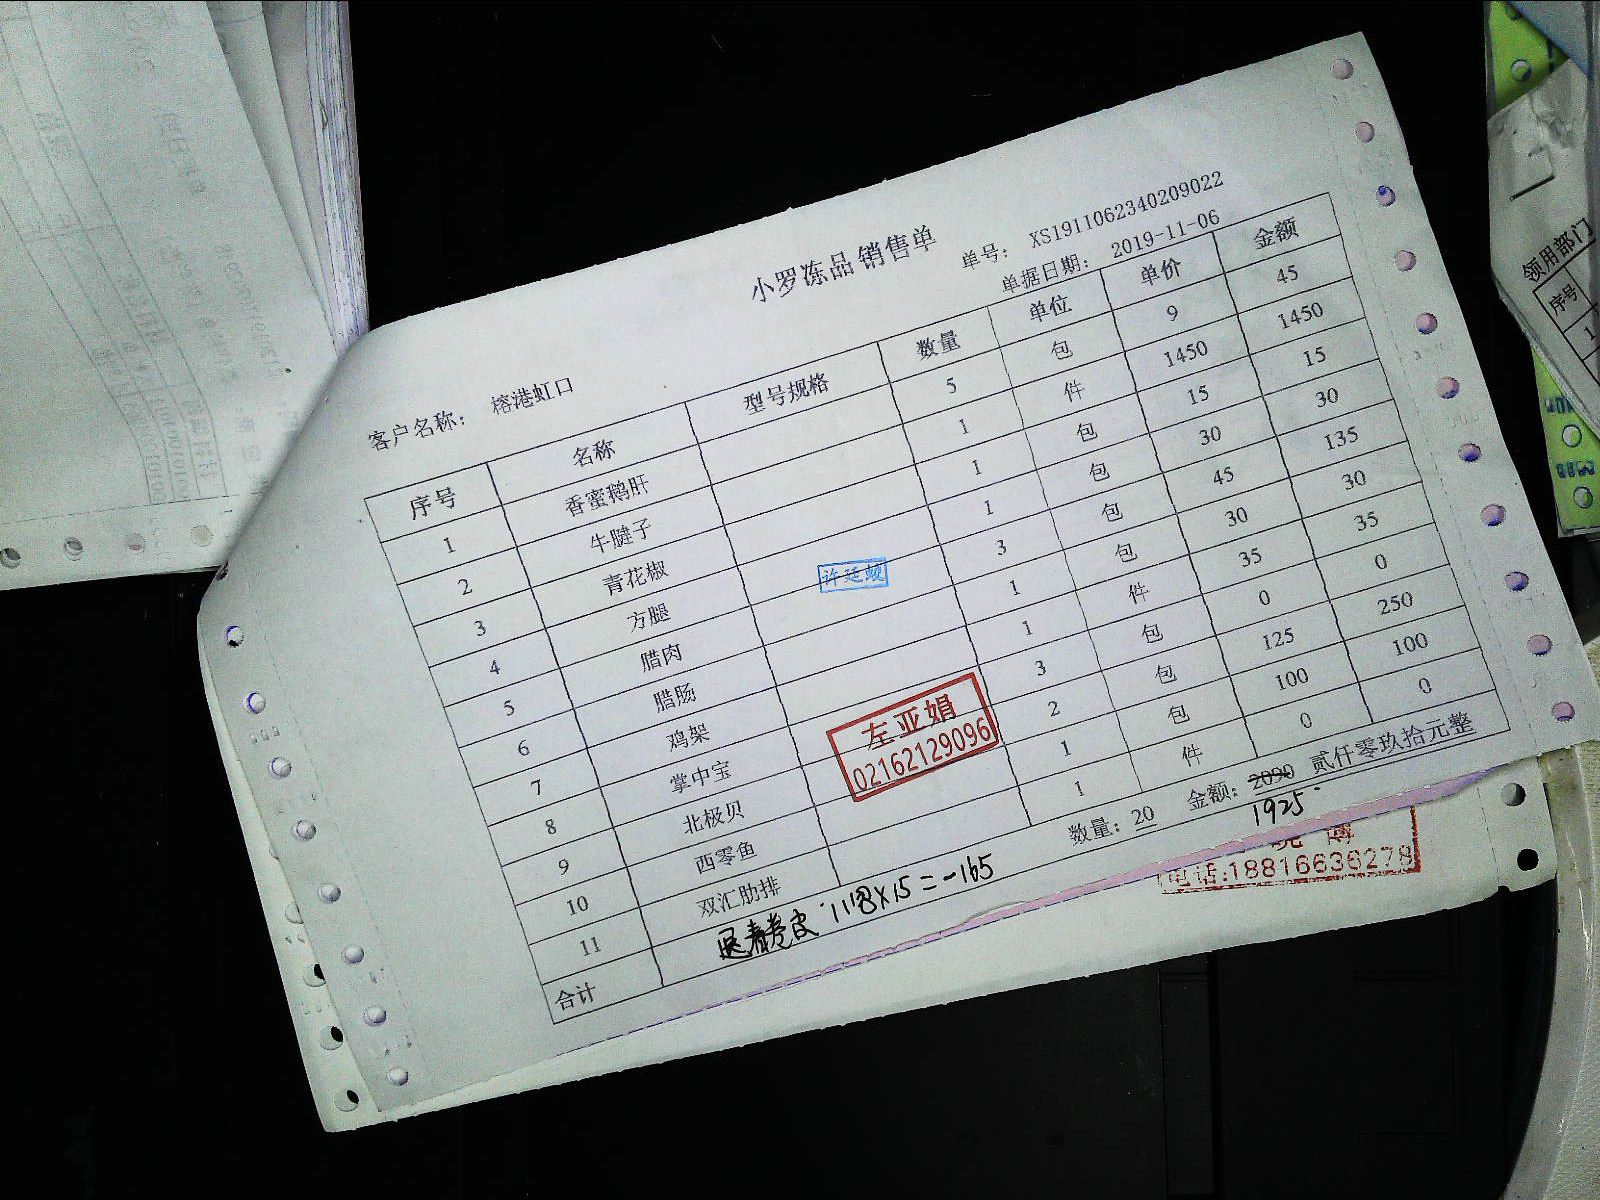 小罗冻品销售单
单号: XS1911062340209022
客户名称: 榕港虹口 单据日期: 2019-11-06
序号 名称 型号规格 数量 单位 单价 金额
1 香蜜鹅肝 5 包 9 45
2 牛腱子 1 件 1450 1450
3 青花椒 1 包 15 15
4 方腿 1 包 30 30
5 腊肉 3 包 45 135
6 腊肠 1 包 30 30
7 鸡架 1 件 35 35
8 掌中宝 3 包 0 0
9 北极贝 2 包 125 250
10 西零鱼 1 包 100 100
11 双汇肋排 1 件 0 0
合计 数量: 20 金额: 2090 贰仟零玖拾元整
1925
退春卷皮 11包X15=-165
左亚娟
02162129096
电话:18816636278
领用部门
序号
1